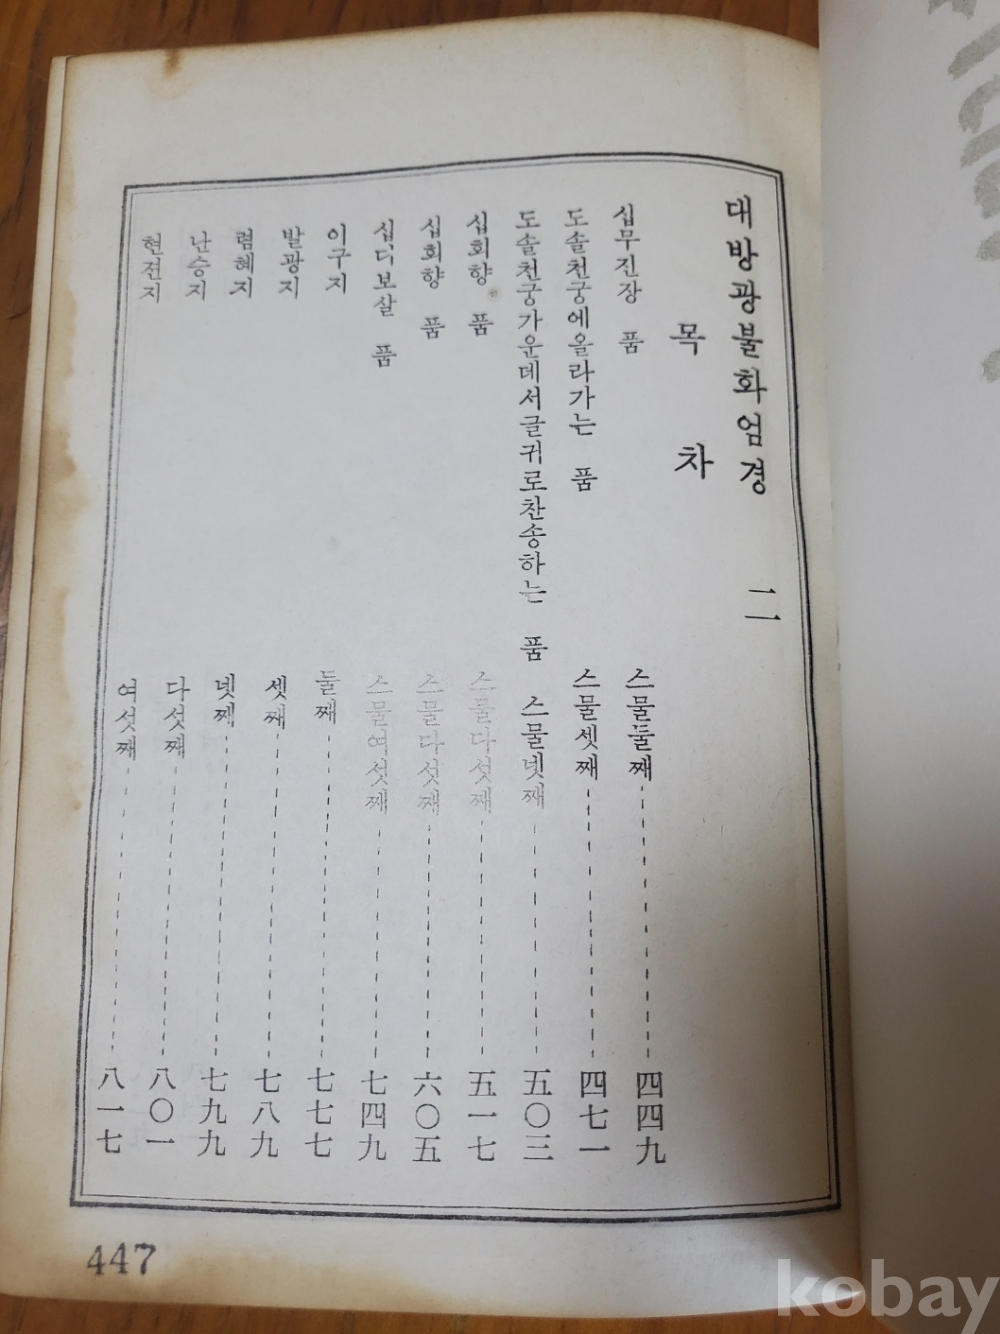 대방광불화엄경 二
목차
십무진장 품 스물둘째 四四九
도솔천궁에올라가는 품 스물셋째 四七一
도솔천궁가운데서글귀로찬송하는 품 스물넷째 五〇三
십회향 품 스물다섯째 五一七
십회향 품 스물다섯째 六〇五
십디보살 품 스물여섯째 七四九
이구지 둘째 七七七
발광지 셋째 七八九
렴혜지 넷째 七九九
난승지 다섯째 八〇一
현전지 여섯째 八一七
447
kobay